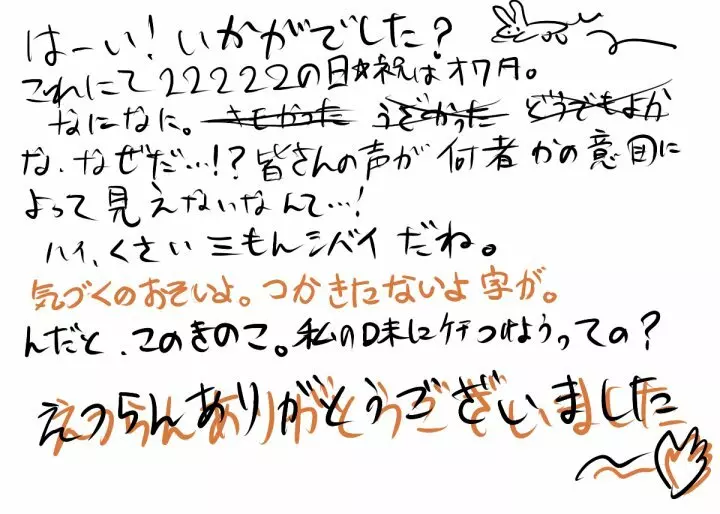 はーい!いかがでした?
これにて22222の日☆祝はオワタ。
なになに。きもかった うざかった どうでもよか
な、なぜだ…!?皆さんの声が何者かの意図に
よって見えないなんて…!
ハイ、くさい三もんシバイだね。
気づくのおそいよ。つかきたないよ字が。
んだと、このきのこ。私の口末にケチつけようっての?
えつらんありがとうございました